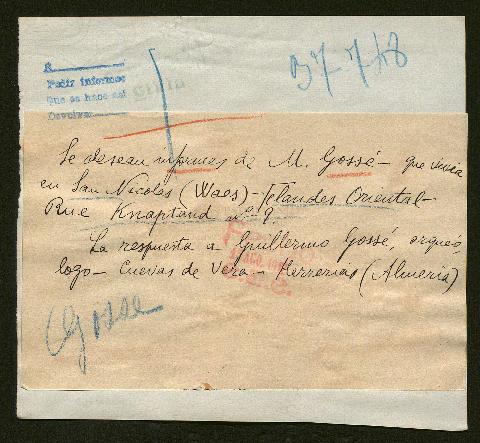 A
Pedir informes
Que se hace así
Devolver
37-7-48
Se desean informes de M. Gossé - que vivia
en San Nicolás (Waes) - Flandes Oriental -
Rue Knaptand nº 9.
La respuesta a Guillermo Gossé, arqueó
logo - Cuevas de Vera - Herrerias (Almeria)
AGO.
Gosse